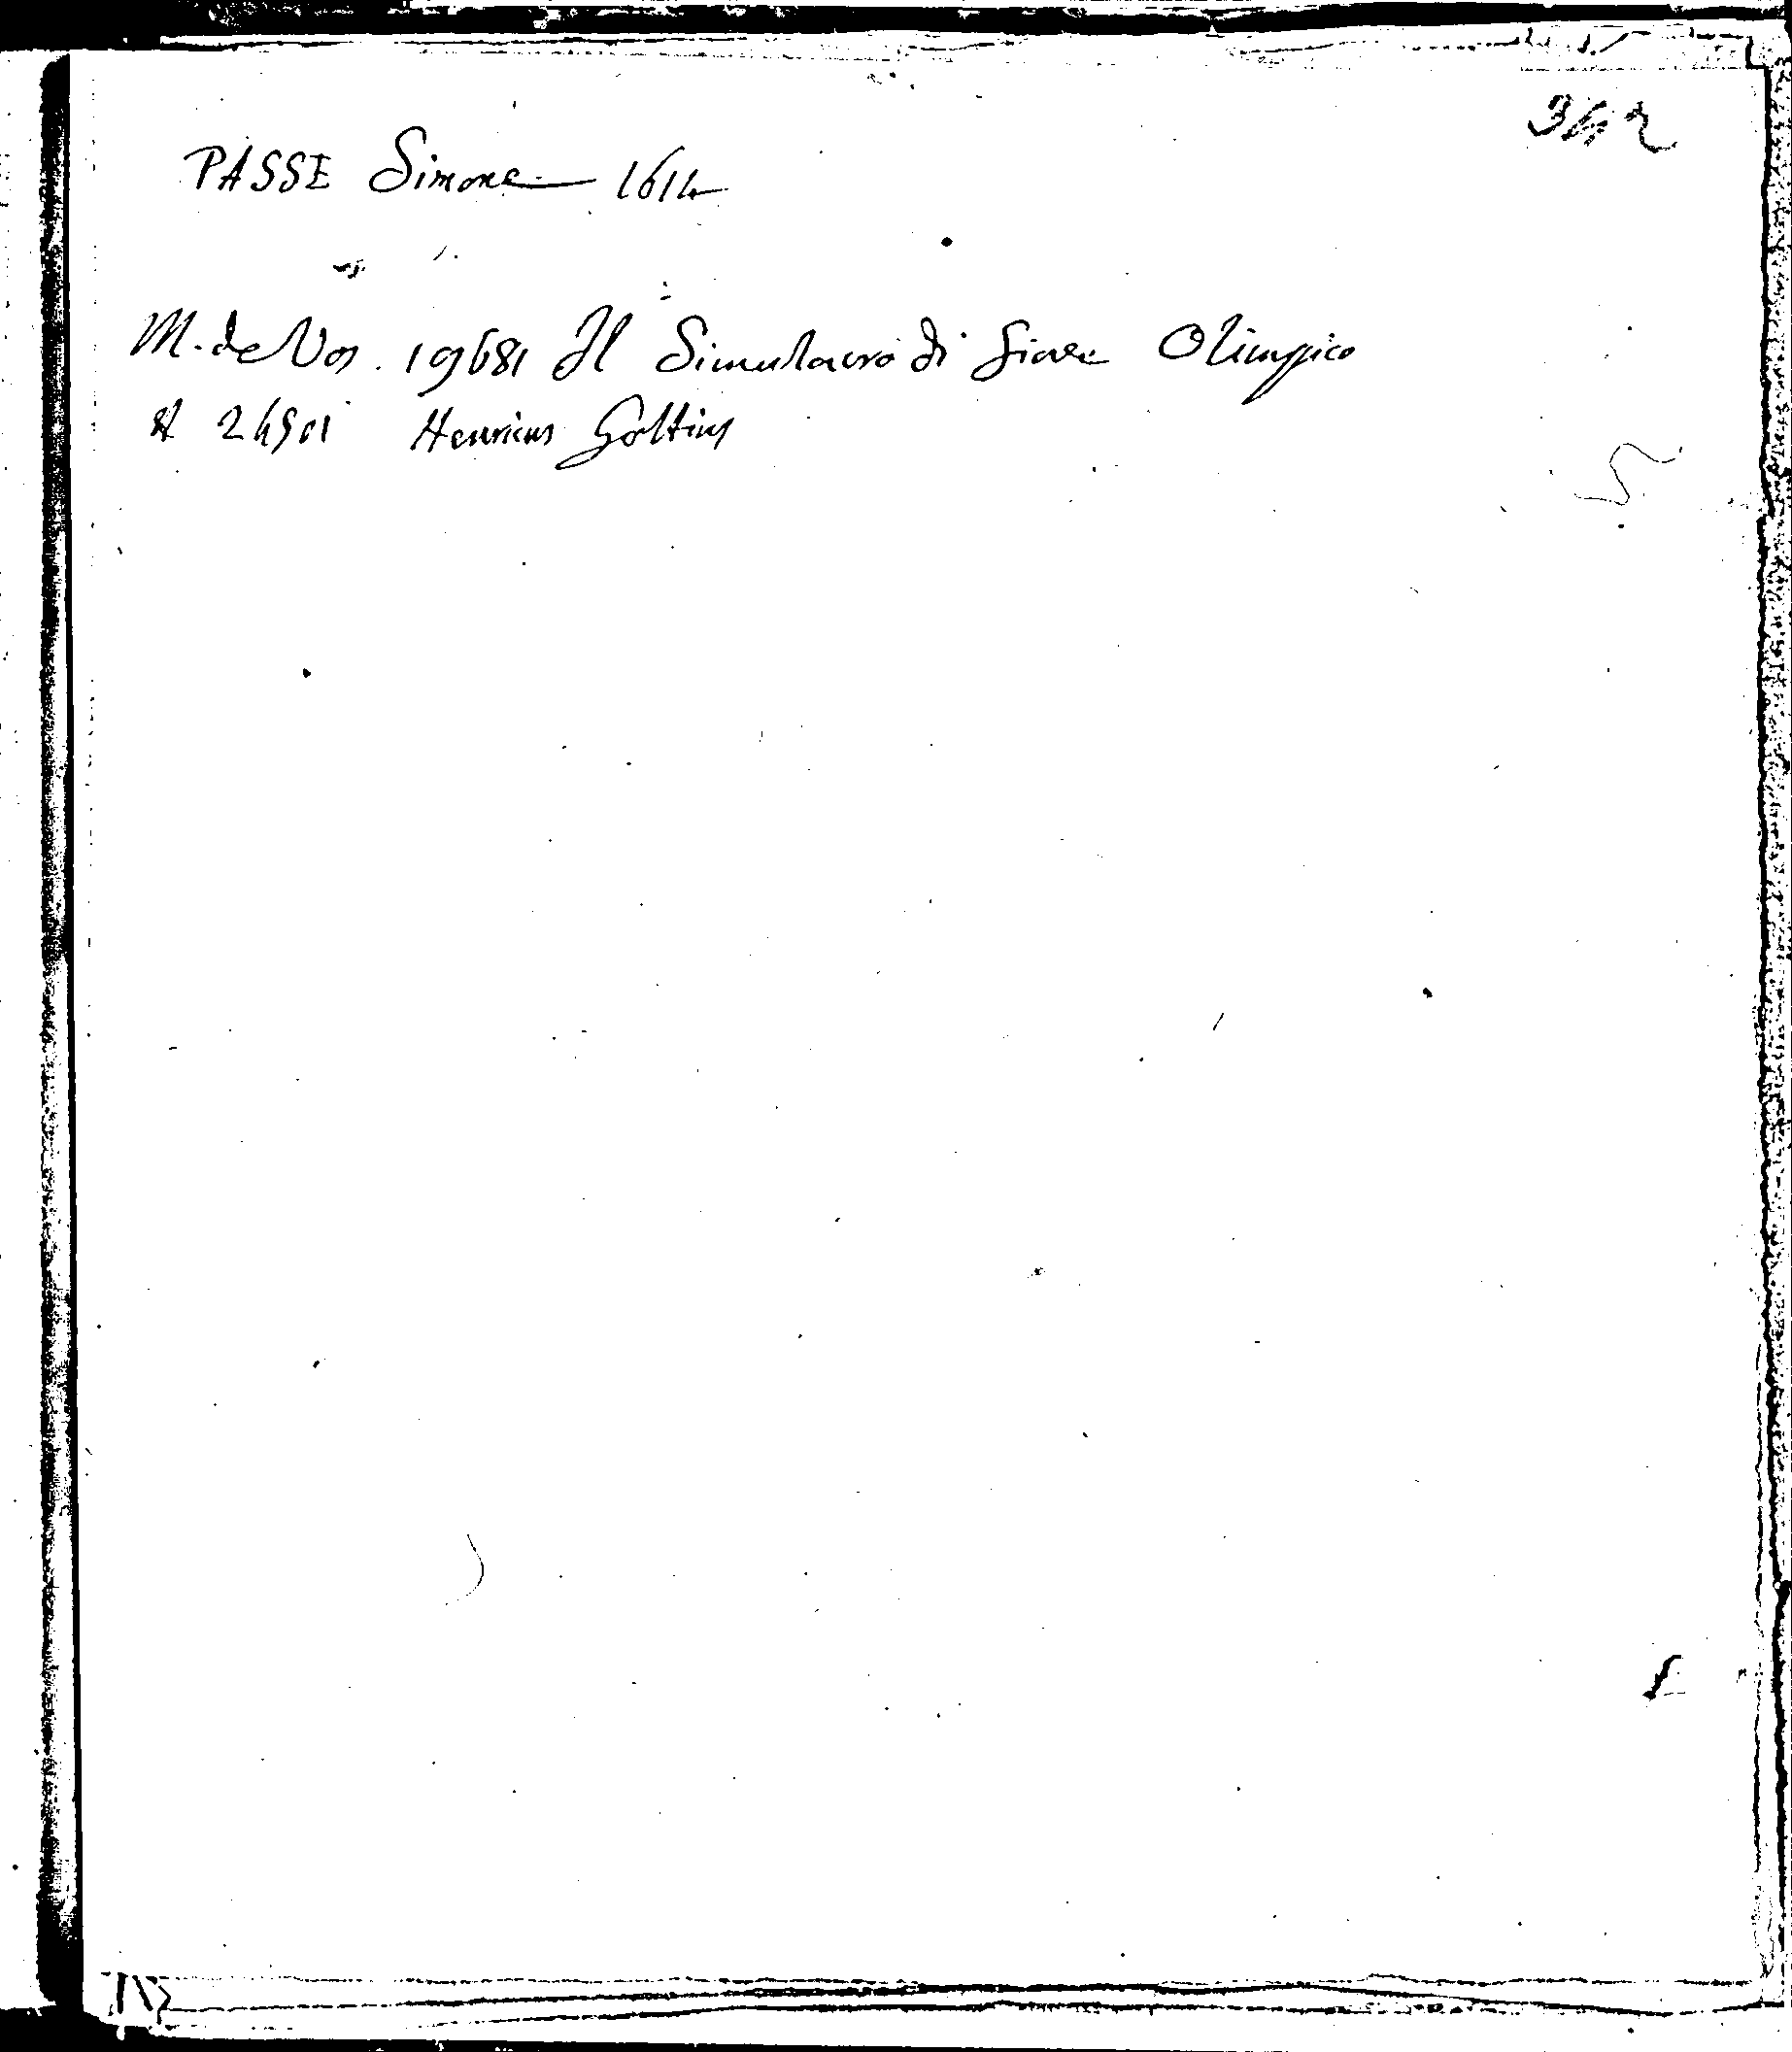 342
PASSE Simone 1614
M. de Vos. 19681 Il Simulacro di Giove Olimpico
24501 Henricus Goltius